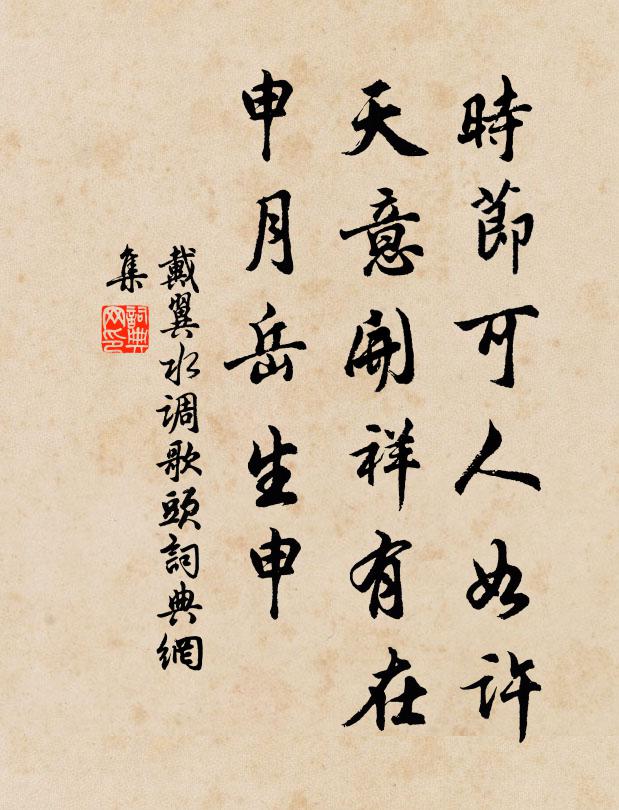 時節可人如許
天意開祥有在
申月岳生申
戴翼水调歌頭詞典網
集
詞典
网印